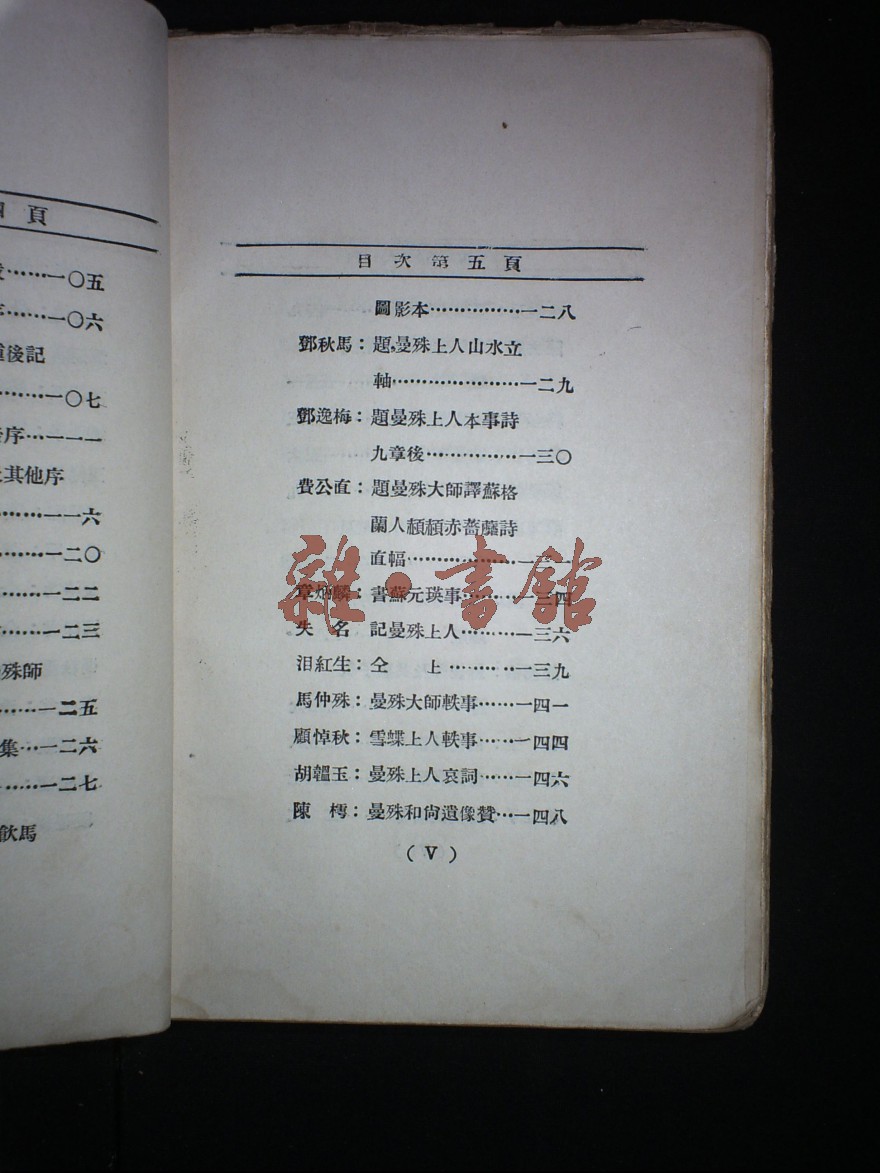 四頁
……一〇五
……一〇六
後記
……一〇七
序…一一一
其他序
……一一六
……一二〇
……一二二
……一二三
殊師
……一二五
集…一二六
……一二七
飲馬
目次第五頁
圖影本……………一二八
鄧秋馬：題曼殊上人山水立
軸…………………一二九
鄧逸梅：題曼殊上人本事詩
九章後……………一三〇
費公直：題曼殊大師譯蘇格
蘭人熲熲赤薔蘼詩
直幅………………一三一
章炳麟：書蘇元瑛事……一三四
失　名：記曼殊上人……一三六
泪紅生：仝　上………一三九
馬仲殊：曼殊大師軼事……一四一
顧悼秋：雪蝶上人軼事……一四四
胡韞玉：曼殊上人哀詞……一四六
陳　樗：曼殊和尚遺像贊…一四八
(V)
雜·書館